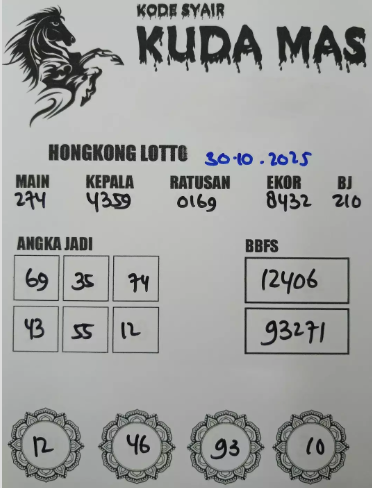 KODE SYAIR
KUDA MAS
HONGKONG LOTTO 30-10.2025
MAIN KEPALA RATUSAN EKOR BJ
274 4359 0169 8432 210
ANGKA JADI BBFS
69 35 74 12406
43 55 12 93271
12 46 93 10